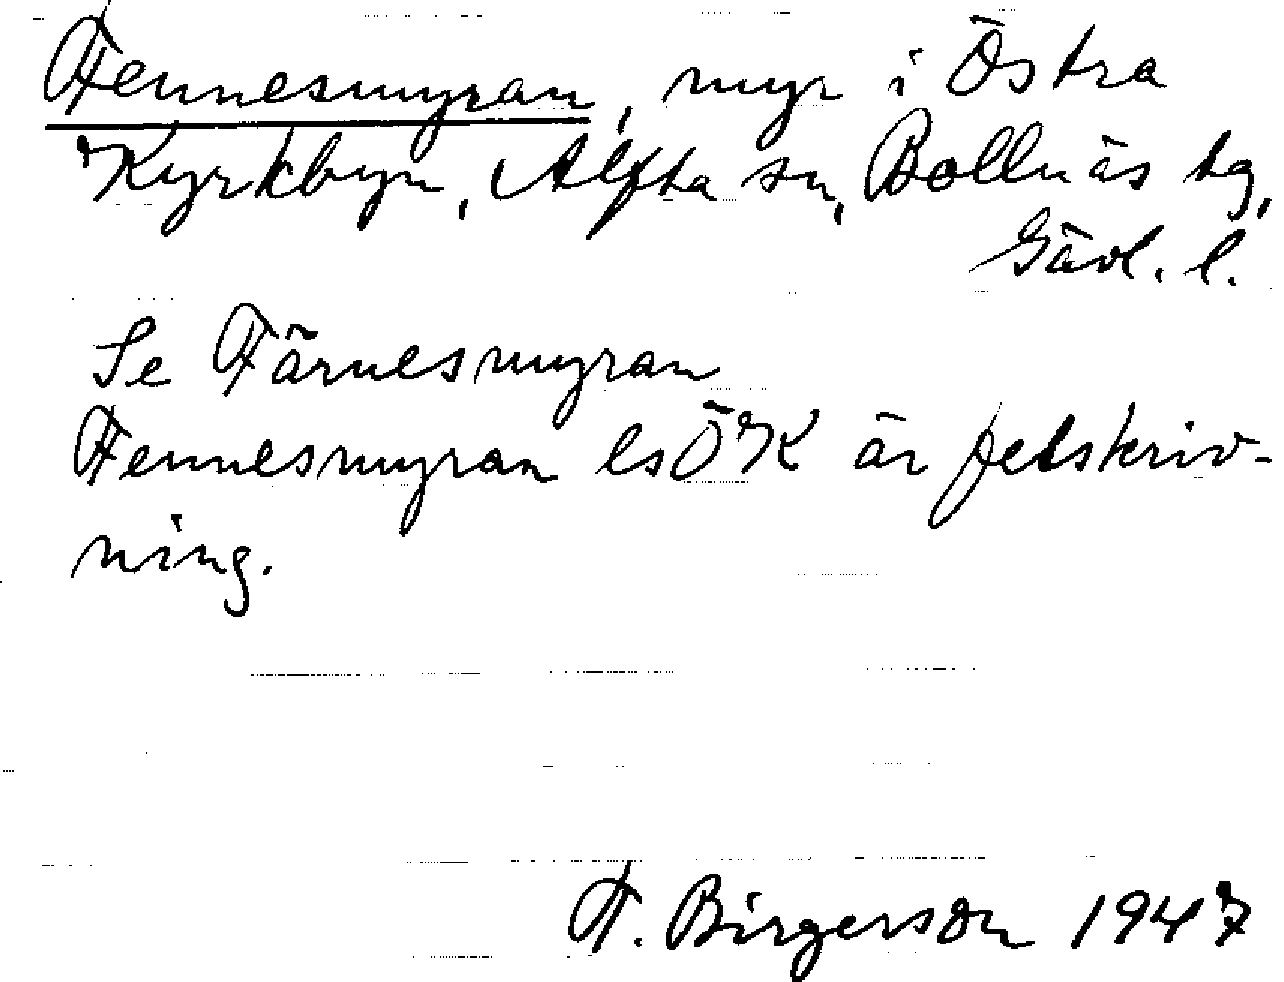 Fennesmyran, myr i Östra
Kyrkbyn, Alfta sn, Bollnäs tg,
Gävl. l.
Se Färnesmyran
Fennesmyran ÖK är felskriv-
ning.
F. Birgerson 1947